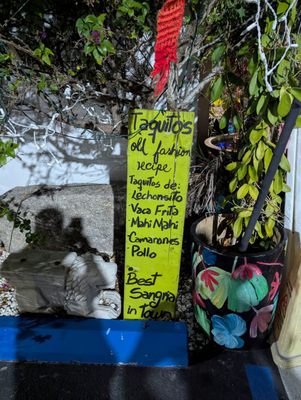 Taquitos
old fashion
recipe
Taquitos de:
Lechonsito
Vaca Frita
Mahi Mahi
Camarones
Pollo
Best
Sangria
in Town